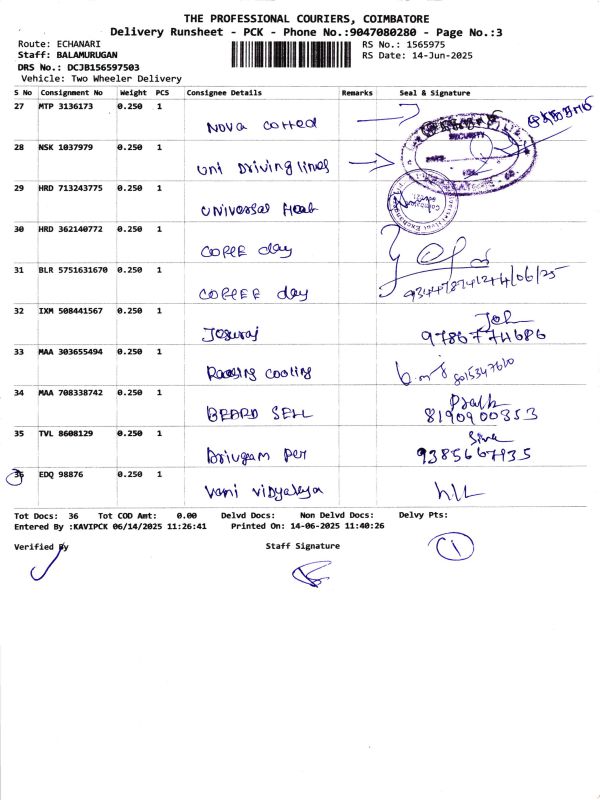 THE PROFESSIONAL COURIERS, COIMBATORE
Delivery Runsheet - PCK - Phone No.:9047080280 - Page No.:3
Route: ECHANARI RS No.: 1565975
Staff: BALAMURUGAN RS Date: 14-Jun-2025
DRS No.: DCJB156597503
Vehicle: Two Wheeler Delivery
S No Consignment No Weight PCS Consignee Details Remarks Seal & Signature
27 MTP 3136173 0.250 1
Nova Corred
28 NSK 1037979 0.250 1
SECURITY
Uni Driving lines
29 HRD 713243775 0.250 1
Universal Heat
30 HRD 362140772 0.250 1
COFFE day
31 BLR 5751631670 0.250 1
COFFEE day
32 IXM 508441567 0.250 1
Jesuraj
9786774686
33 MAA 303655494 0.250 1
Racing cooling
8015347610
34 MAA 708338742 0.250 1
BEARD SELL
8190900353
35 TVL 8608129 0.250 1
Siva
9385667935
36 EDQ 98876 0.250 1
Vani vidyalaya
Tot Docs: 36 Tot COD Amt: 0.00 Delvd Docs: Non Delvd Docs: Delvy Pts:
Entered By :KAVIPCK 06/14/2025 11:26:41 Printed On: 14-06-2025 11:40:26
Verified By Staff Signature
1